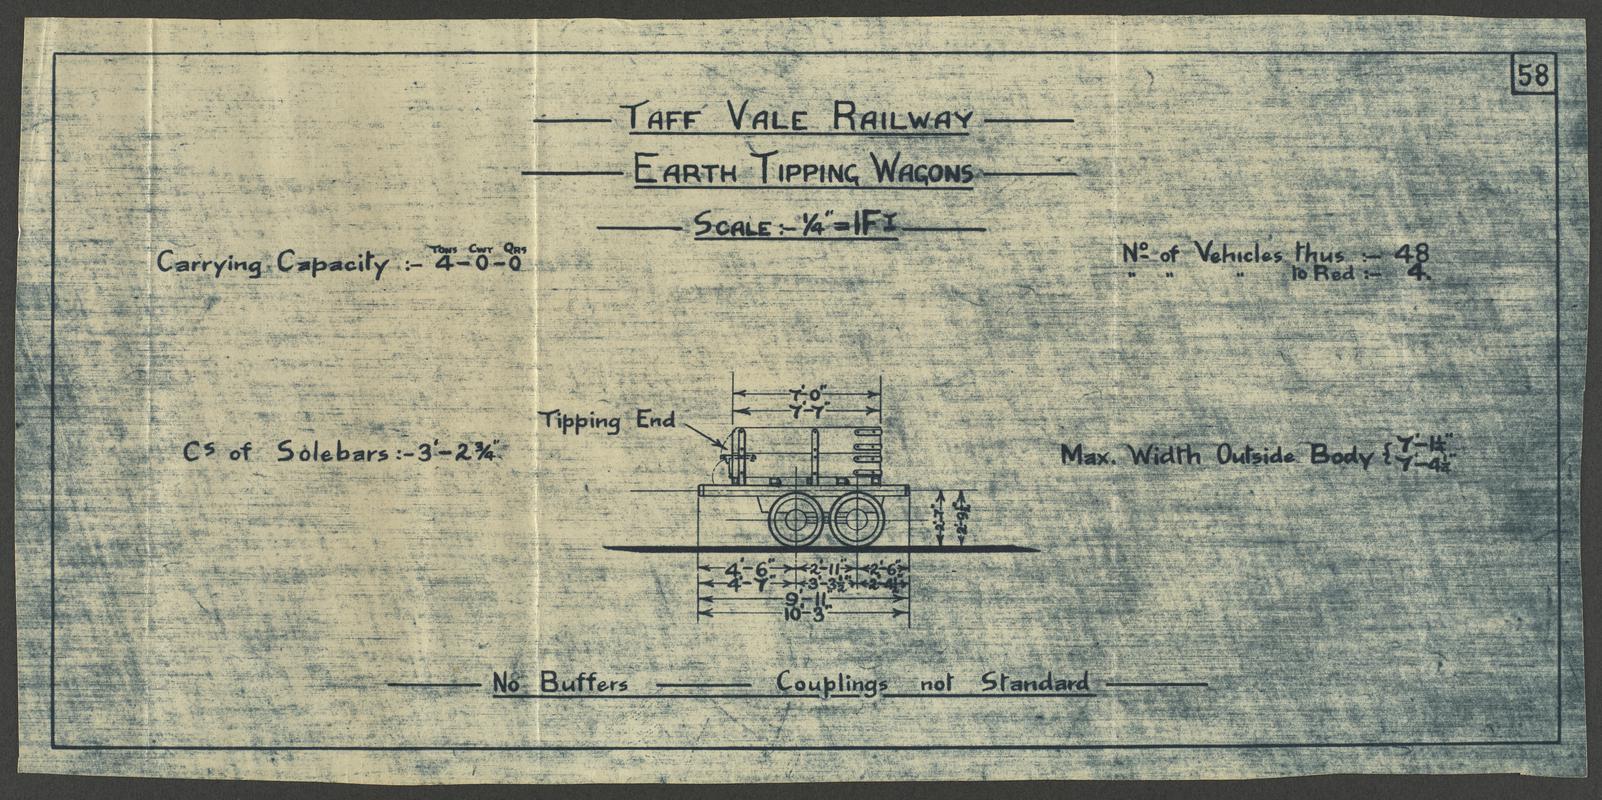 58
TAFF VALE RAILWAY
EARTH TIPPING WAGONS
SCALE:- 1/4" = 1FT
TONS CWT QRS
Carrying Capacity :- 4-0-0
No of Vehicles thus :- 48
" " " to Red :- 4.
7'-0"
7'-7"
Tipping End
Cs of Solebars:- 3'-2 3/4"
Max. Width Outside Body { 7'-1 1/4"
7'-4
2'-7"
4'-6" 2'-11" 2'-6"
4'-7" 3'-3 1/2"
9'-11"
10'-3"
No Buffers Couplings not Standard